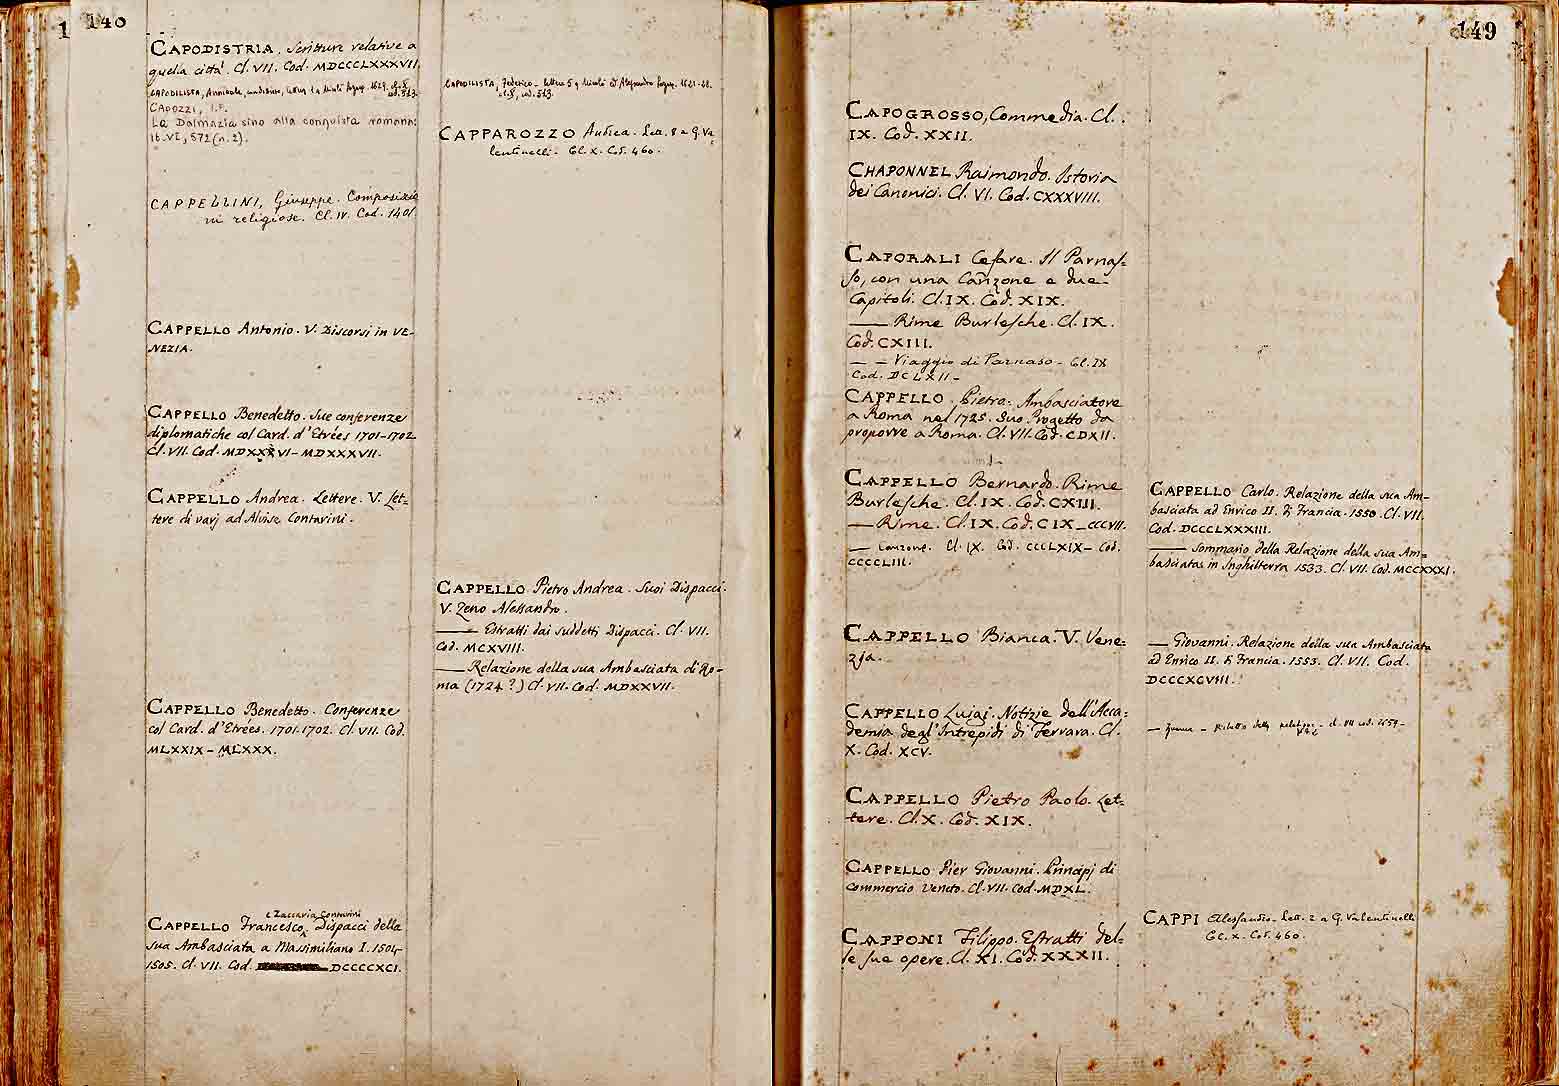 140
CAPODISTRIA. Scritture relative a
quella città. Cl. VII. Cod. MDCCCLXXXVII.
CAPODILISTA, Annibale,
CAPOZZI, I.F.
La Dalmazia sino alla conquista romana:
It. VI, 572 (n. 2).
CAPPELLINI, Giuseppe. Composizio
ni religiose. Cl. IV. Cod. 1401.
CAPPELLO Antonio. V. Discorsi in VE-
NEZIA.
CAPPELLO Benedetto. Sue conferenze
diplomatiche col Card. d'Etrées 1701-1702
Cl. VII. Cod. MDXXXVI-MDXXXVII.
CAPPELLO Andrea. Lettere. V. Let-
tere di varj ad Alvise Contarini.
CAPPELLO Benedetto. Conferenze
col Card. d'Etrées. 1701.1702. Cl. VII. Cod.
MLXXIX-MLXXX.
e Zaccaria Contarini
CAPPELLO Francesco, Dispacci della
sua Ambasciata a Massimiliano I. 1504-
1505. Cl. VII. Cod. DCCCCXCI.
CAPODILISTA, Federico - lettere 5 a Nicolò ed Alessandro 1621-28.
cl. X, cod. 513.
CAPPAROZZO Andrea. Lett. 8 a G. Va
lentinelli. Cl. X. Cod. 460.
CAPPELLO Pietro Andrea. Suoi Dispacci.
V. Zeno Alessandro.
—— Estratti dai suddetti Dispacci. Cl. VII.
Cod. MCXVIII.
—— Relazione della sua Ambasciata di Ro-
ma (1724?) Cl. VII. Cod. MDXXVII.
149
CAPOGROSSO, Commedia. Cl.
IX. Cod. XXII.
CHAPONNEL Raimondo. Istoria
dei Canonici. Cl. VI. Cod. CXXXVIII.
CAPORALI Cesare. Il Parnas-
so, con una Canzone e due
Capitoli. Cl. IX. Cod. XIX.
—— Rime Burlesche. Cl. IX.
Cod. CXIII.
— — Viaggio di Parnaso - Cl. IX
Cod. DCLXII -
CAPPELLO. Pietro: Ambasciatore
a Roma nel 1725. Suo Progetto da
proporre a Roma. Cl. VII. Cod. CDXII.
CAPPELLO Bernardo. Rime
Burlesche. Cl. IX. Cod. CXIII.
— Rime. Cl. IX. Cod. CIX_CCCVII.
— Canzone. Cl. IX. Cod. CCCLXIX- Cod.
CCCCLIII.
CAPPELLO Bianca. V. Vene-
zia.
CAPPELLO Luigi. Notizie dell'Acca-
demia degl'Intrepidi di Ferrara. Cl.
X. Cod. XCV.
CAPPELLO Pietro Paolo. Let-
tere. Cl. X. Cod. XIX.
CAPPELLO Pier Giovanni. Principj di
commercio Veneto. Cl. VII. Cod. MDXL.
CAPPONI Filippo. Estratti del-
le sue opere. Cl. XI. Cod. XXXII.
CAPPELLO Carlo. Relazione della sua Am-
basciata ad Enrico II. di Francia. 1550. Cl. VII.
Cod. DCCCLXXXIII.
—— Sommario della Relazione della sua Am-
basciatas in Inghilterra 1533. Cl. VII. Cod. MCCXXXI.
— Giovanni. Relazione della sua Ambasciata
ad Enrico II. di Francia. 1553. Cl. VII. Cod.
DCCCXCVIII.
CAPPI Alessandro - Lett. 2 a G. Valentinelli
Cl. X. Cod. 460.